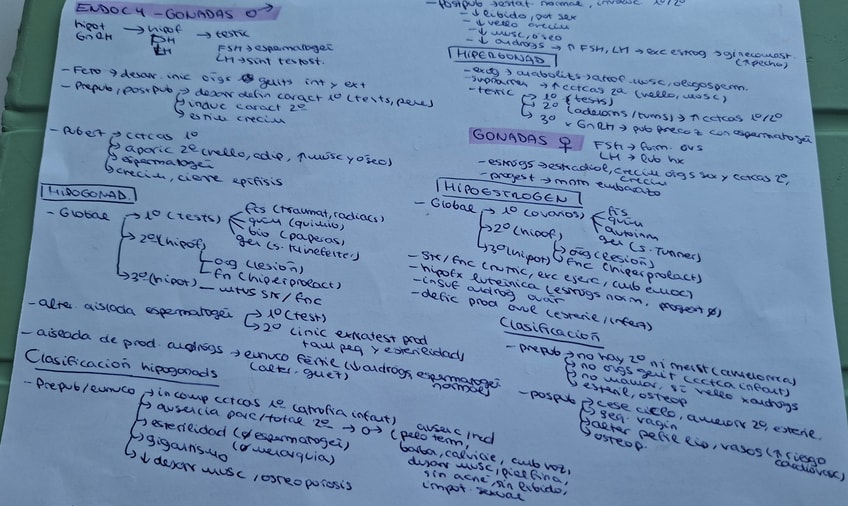 ENDOC 4 - GONADAS ♂
hipot → hipof → testic
GnRH FSH LH
FSH → espermatogei
LH → sint testost.
- Feto → desarr. inic orgs genits int y ext
- Prepub, postpub → desarr defin caract 1º (tests, pene)
induc caract 2º
estim crecim
- Pubert → ccteas 1º
aparic 2ª (vello, adip, ↑ musc y óseo)
espermatogei
crecim, cierre epífisis
HIPOGONAD.
- Global → 1º (tests) fís (traumat, radiacs)
quím (quimio)
bio (paperas)
gen (s. Klinefelter)
2º (hipof) org (lesión)
fn (hiperprolact)
3º (hipot) — mtvs stk/fnc
- alter. aislada espermatogei → 1º (test)
2º (inic extratest prod
taul peq y esterilidad)
- aislada de prod. androgs → eunuco fértil (↓ androgs, espermatogei
(alter. guet) normal)
Clasificación hipogonads
- Prepub/eunuco → incomp cctcas 1º (atrofia infant)
ausencia parc/total 2º → ausenc/red
(pelo term,
barba, calvicie, cmb voz,
desarr musc, piel fina,
sin acné, sin libido,
impot. sexual
esterilidad (ø espermatogei)
gigantismo (ø menarquia)
↓ desarr musc, osteoporosis
- Postpub → estat normal, involuc 1º/2º
↓ libido, pot sex
↓ vello
↓ musc, óseo
↓ androgs → ↑ FSH, LH → exc estrog → ginecomast.
(↑ pecho)
HIPERGONAD
- exóg → anabolits → atrof. musc, oligosperm.
- suprarren → ↑ cctcas 2ª (vello, musc)
- testic → 1º (tests)
2º (adenoms/tums) → ↑ cctcas 1º/2º
3º GnRH → pub precoz con espermatogei
GONADAS ♀
FSH → form. ovs
LH →
- estrógs → estradiol, crecim orgs sex y cctcas 2ª,
crecim
- progest → mntn embarazo
HIPOESTROGEN
- Global → 1º (ovarios) fís
quím
autoinm
gen (s. Turner)
2º (hipof)
3º (hipot) org (lesión)
fnc (hiperprolact)
- Stk/fnc (nutric, exc ejerc, cmb emoc)
- hipofx luteínica (estrogs norm, progest ø)
- insuf androg ovar
- defic prod ovul (esteril/infert)
Clasificación
- prepub → no hay 2º ni menst (amenorrea)
no orgs genit (cctca infant)
no mamar, sí vello xandrogs
esteril, osteop
- pospub → cese ciclo, amenorr 2ª, esteril.
seq. vagin
alter perfil lip, vasos (↑ riesgo
cardiovasc)
osteop.